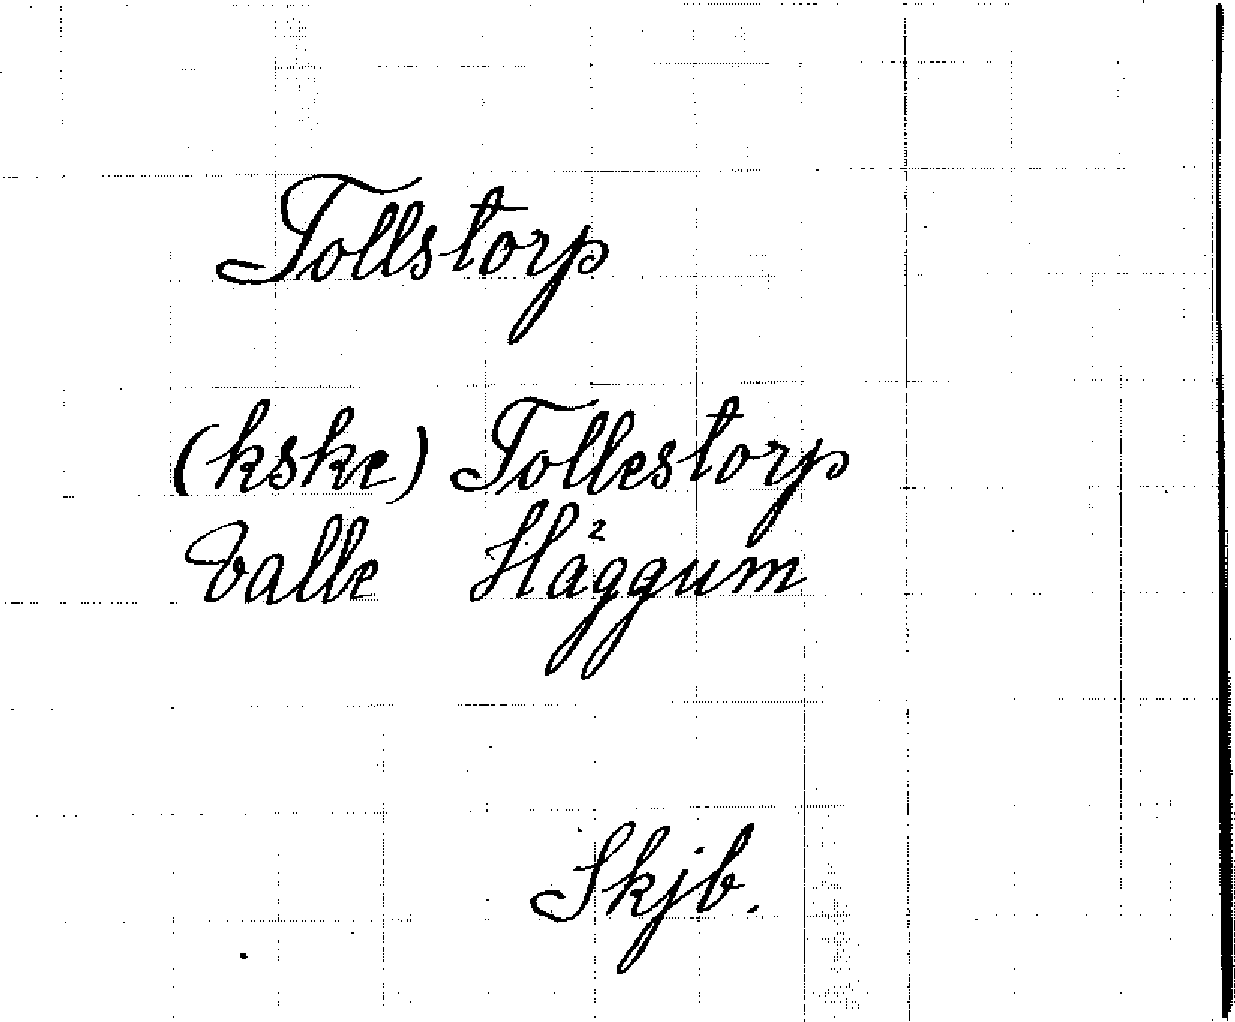 Tollstorp
(kske) Tollestorp
Valle Häggum
Skjb.